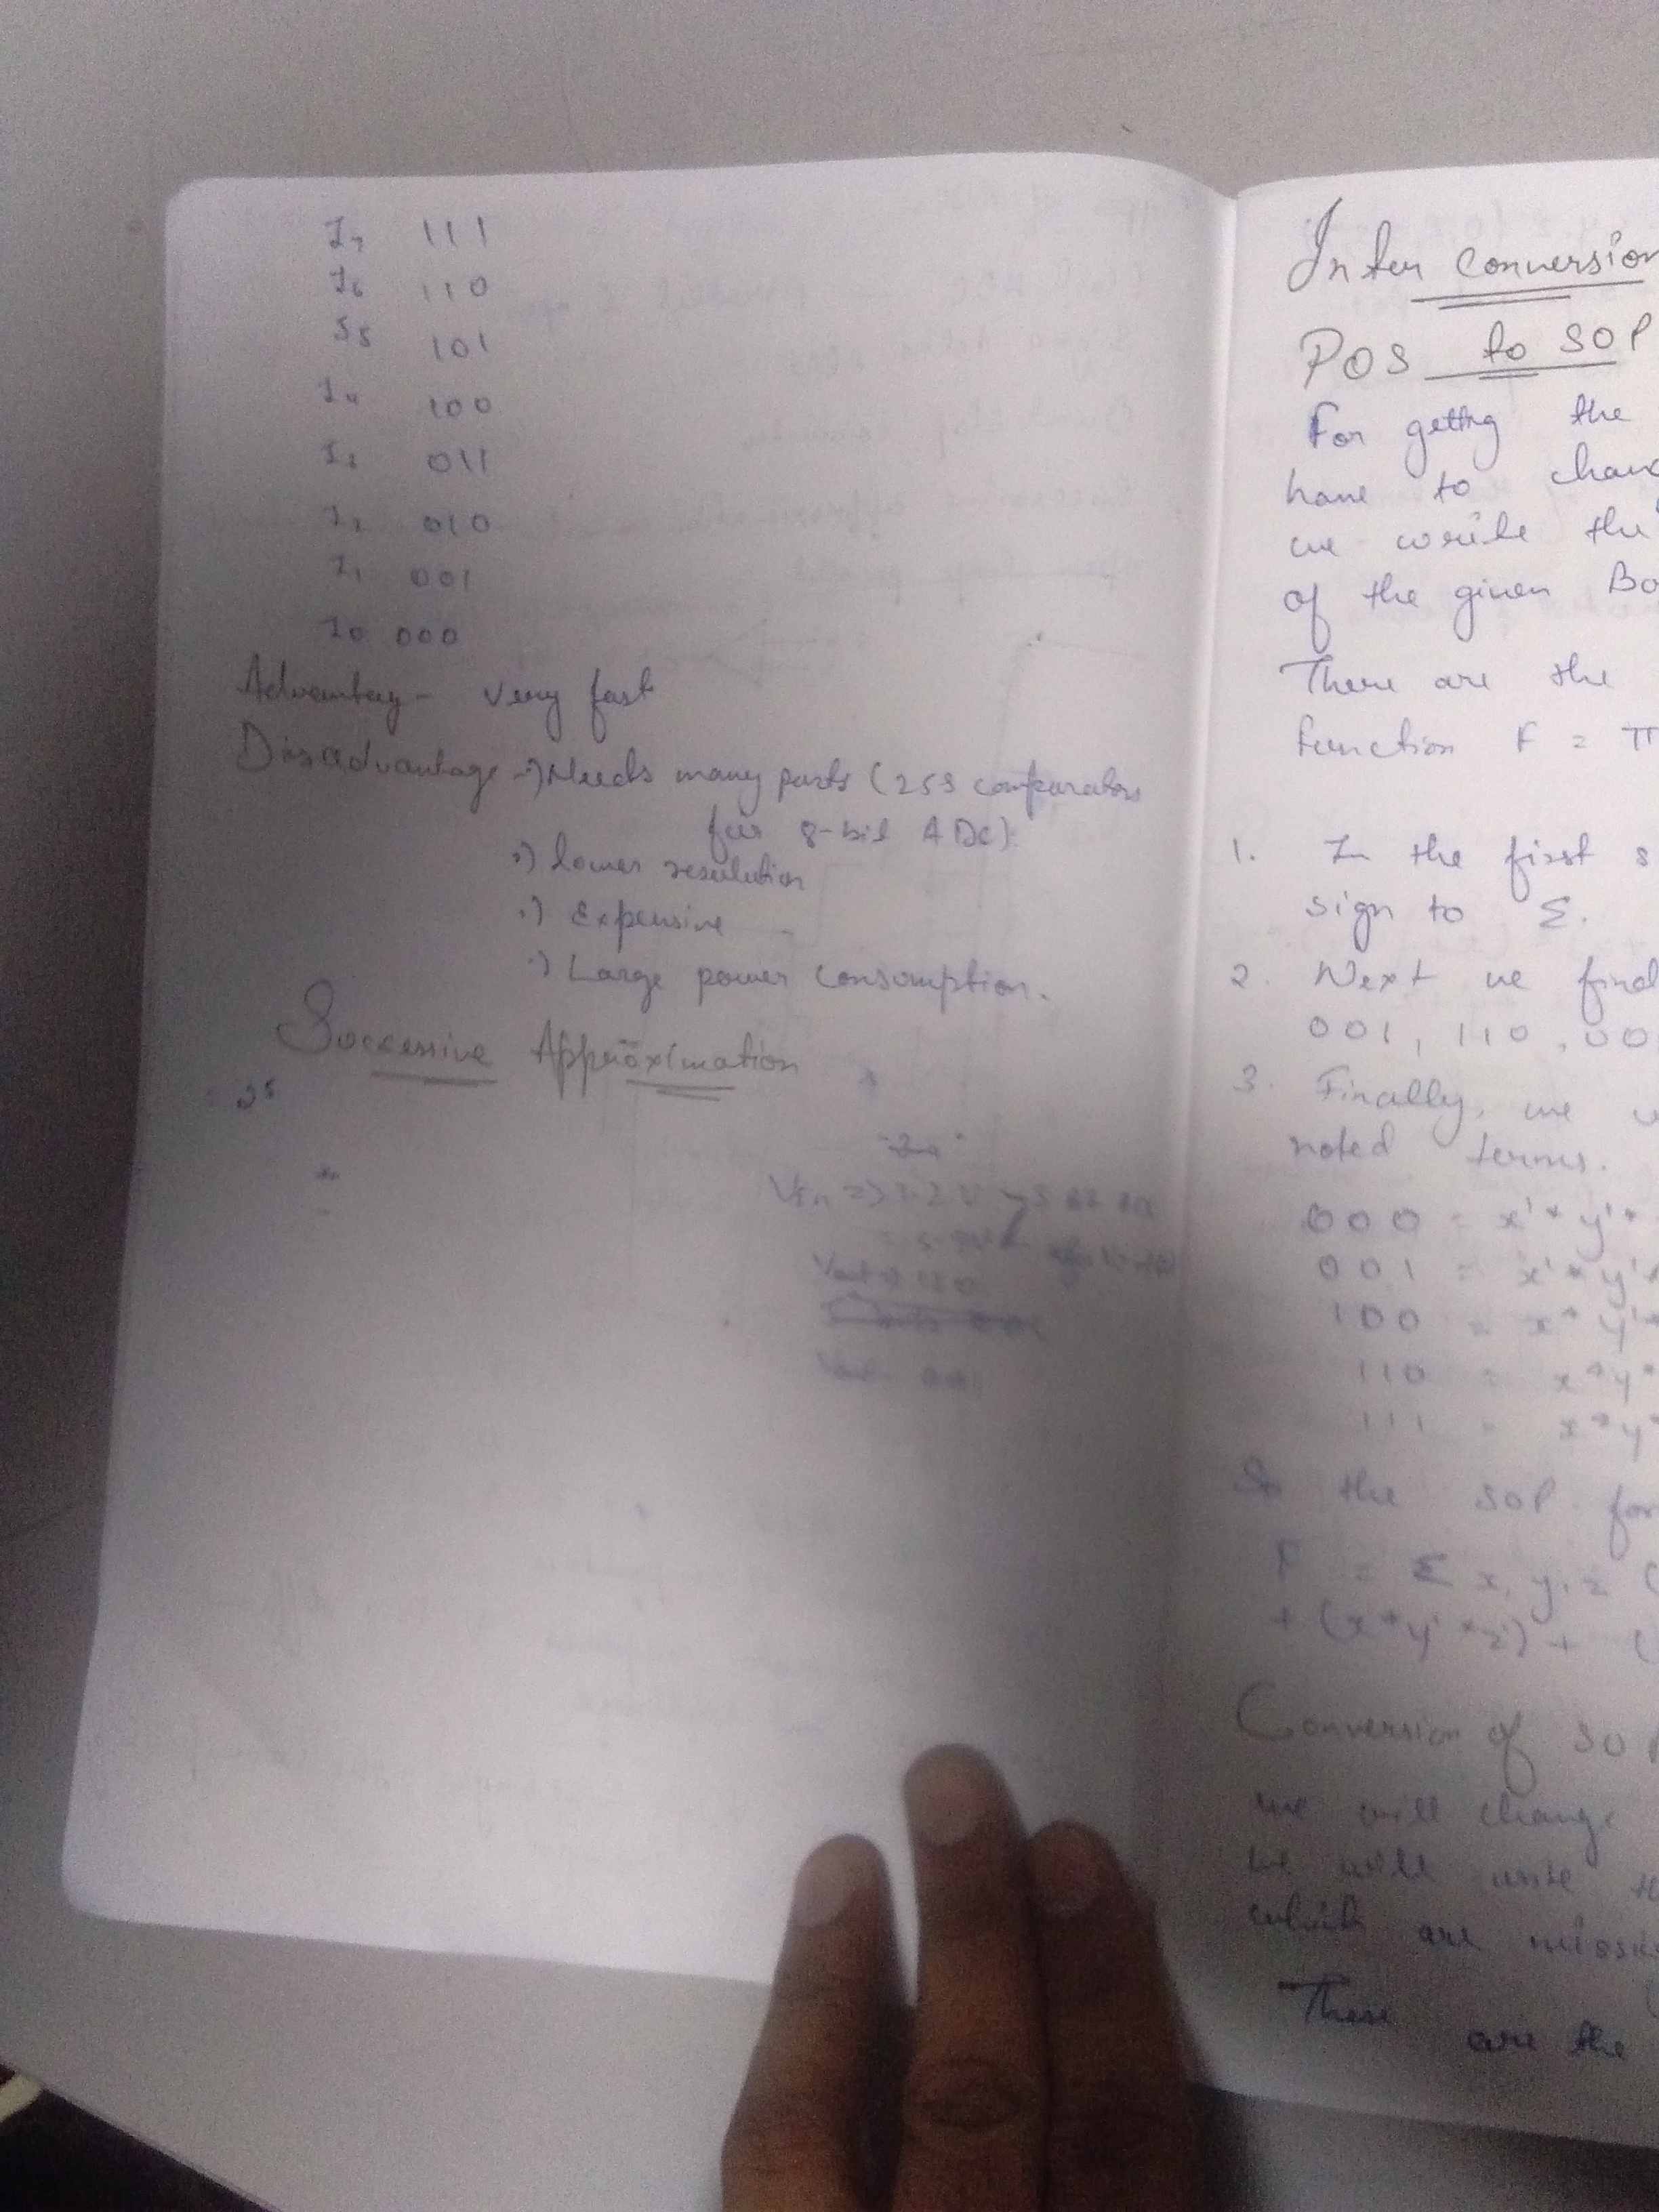 I7 111
I6 110
I5 101
I4 100
I3 011
I2 010
I1 001
I0 000
Advantag - Very fast
Disadvantage -·) Needs many parts (255 comparators
for 8-bit ADC).
·) lower resolution
·) Expensive
·) Large power consumption.
Successive Approximation
Vout => 110
Vout = 001
Inter conversion
POS to SOP
For gettng the
have to chan
we write the
of the given Bo
There are the
function F = π
1. In the first s
sign to Σ.
2. Next we find
001, 110, 00
3. Finally, we w
noted terms.
000 = x' * y' *
001 = x' * y' *
100 = x * y' *
110 = x * y *
111 = x * y *
So the SOP for
F = Σ x, y, z (
+ (x * y' * z') + (
Conversion of SOP
we will change
we will write th
which are missi
These are the